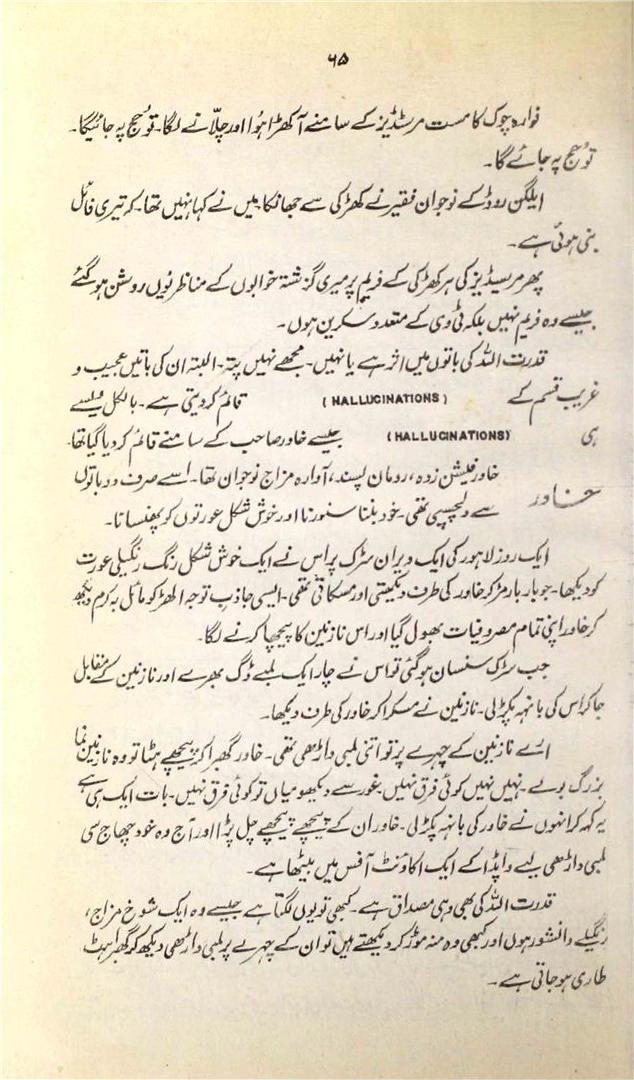 ۶۵
فوارہ چوک کا مست مرسڈیز کے سامنے آ کھڑا ہُوا اور چلّانے لگا۔ توُ حج پہ جائیگا۔
توُ حج پہ جائے گا۔
ایلگن روڈ کے نوجوان فقیر نے کھڑکی سے جھانکا میں نے کہا نہیں تھا۔ کہ تیری فائل
بنی ہوئی ہے۔
پھر مرسیڈیز کی ہر کھڑکی کے فریم پر میری گزشتہ خوابوں کے مناظر یُوں روشن ہو گئے
جیسے وہ فریم نہیں بلکہ ٹی وی کے متعدد سکرین ہوں۔
قدرت اللہ کی باتوں میں اثر ہے یا نہیں۔ مجھے نہیں پتہ۔ البتہ ان کی باتیں عجیب و
غریب قسم کے (HALLUCINATIONS) قائم کر دیتی ہے۔ بالکل ویسے
ہی (HALLUCINATIONS) جیسے خاور صاحب کے سامنے قائم کر دیا گیا تھا۔
خاور فیشن زدہ، رومان پسند، آوارہ مزاج نوجوان تھا۔ اسے صرف دو باتوں
خاور
سے دلچسپی تھی۔ خود بننا سنورنا اور خوش شکل عورتوں کو پھنسانا۔
ایک روز لاہور کی ایک ویران سڑک پر اس نے ایک خوش شکل رنگ رنگیلی عورت
کو دیکھا۔ جو بار بار مڑ کر خاور کی طرف دیکھتی اور مسکاتی تھی۔ ایسی جاذب توجہ الھڑ کو مائل بہ کرم دیکھ
کر خاور اپنی تمام مصروفیات بھول گیا اور اس نازنین کا پیچھا کرنے لگا۔
جب سڑک سنسان ہو گئی تو اس نے چار ایک لمبے ڈگ بھرے اور نازنین کے مقابل
جا کر اس کی بانہہ پکڑ لی۔ نازنین نے مسکرا کر خاور کی طرف دیکھا۔
ارے نازنین کے چہرے پر تو اتنی لمبی داڑھی تھی۔ خاور گھبرا کر پیچھے ہٹا تو وہ نازنین نما
بزرگ بولے۔ نہیں نہیں کوئی فرق نہیں۔ غور سے دیکھو میاں تو کوئی فرق نہیں۔ بات ایک ہی ہے
یہ کہہ کر انہوں نے خاور کی بانہہ پکڑ لی۔ خاور ان کے پیچھے پیچھے چل پڑا اور آج وہ خود چھاج سی
لمبی داڑھی لیے واپڈا کے ایک اکاؤنٹ آفس میں بیٹھا ہے۔
قدرت اللہ کی بھی وہی مصداق ہے۔ کبھی تو یوں لگتا ہے جیسے وہ ایک شوخ مزاج،
رنگیلے دانشور ہوں اور کبھی وہ منہ موڑ کر دیکھتے ہیں تو ان کے چہرے پر لمبی داڑھی دیکھ کر گھبراہٹ
طاری ہو جاتی ہے۔